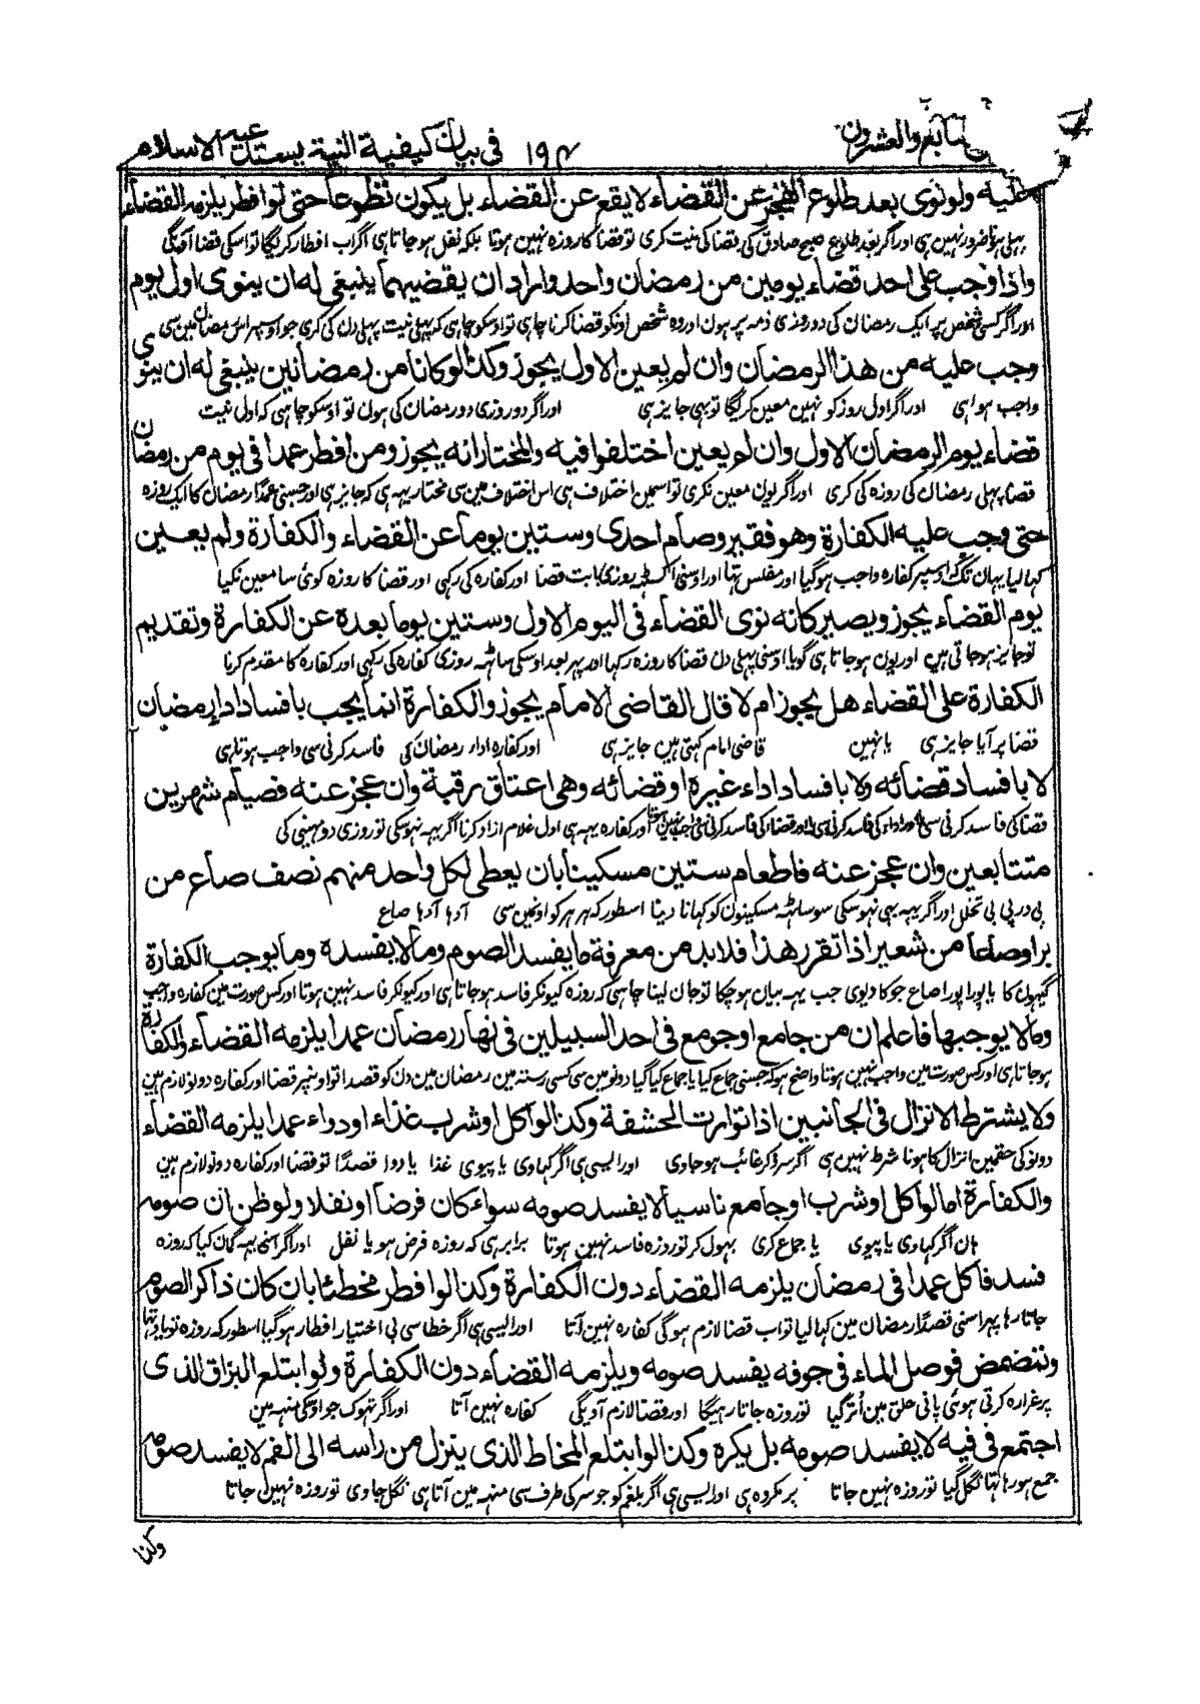 والعشرون ۱۹۴ فى بيان كيفية النية
عليه ولو نوى بعد طلوع الفجر عن القضاء لا يقع عن القضاء بل يكون تطوعا حتى لو افطر يلزمه القضاء
پہلی ہونا ضرور نہین ہی اور اگر بعد طلوع صبح صادق کی قضا کی نیت کری تو قضا کا روزہ نہین ہوتا بلکہ نفل ہو جاتا ہی اگر اب افطار کرلیگا تو اسکی قضا آویگی
واذا وجب على احد قضاء يومين من رمضان واحد واراد ان يقضيهما ينبغى له ان ينوى اول يوم
اور اگر کسی شخص پر ایک رمضان کی دو روزی ذمہ پر ہون اور وہ شخص اونکو قضا کرنا چاہی تو اوسکو چاہی کہ پہلی نیت پہلی دن کی کری جو اوسپر اس رمضان مین سی
وجب عليه من هذا الرمضان وان لم يعين الاول يجوز وكذا لو كانا من رمضانين ينبغى له ان ينوى
واجب ہوا ہی اور اگر اول روز کو نہین معین کرلیگا تو بہی جایز ہی اور اگر دو روزی دو رمضان کی ہون تو اوسکو چاہی کہ اول نیت
قضاء يوم الرمضان الاول وان لم يعين اختلفوا فيه والمختار انه يجوز ومن افطر عمدا فى يوم من رمضان
قضا پہلی رمضان کی روزہ کی کری اور اگر یون معین نکری تو اسمین اختلاف ہی اس اختلاف مین سی مختار یہہ ہی کہ جایز ہی اور جسنی عمدًا رمضان کا ایک روزہ
حتى وجب عليه الكفارة وهو فقير وصام احدى وستين يوما عن القضاء والكفارة ولم يعين
کہا لیا یہان تک کہ اوسپر کفارہ واجب ہوگیا اور مفلس تہا اور اوسنی اکسٹہ روزی بابت قضا اور کفارہ کی رکہی اور قضا کا روزہ کوئی سا معین نکیا
يوم القضاء يجوز ويصير كانه نوى القضاء فى اليوم الاول وستين يوما بعده عن الكفارة وتقديم
تو جایز ہو جاتی ہین اور یون ہو جاتا ہی گویا اوسنی پہلی دن قضا کا روزہ رکہا اور پہر بعد اوسکی ساٹہہ روزی کفارہ کی رکہی اور کفارہ کا مقدم کرنا
الكفارة على القضاء هل يجوز ام لا قال القاضى الامام يجوز والكفارة انما يجب بافساد اداء رمضان
قضا پر آیا جایز ہی یا نہین قاضی امام کہتی ہین جایز ہی اور کفارہ اداء رمضان کی فاسد کرنی سی واجب ہوتا ہی
لا بافساد قضائه ولا بافساد اداء غيره او قضائه وهى اعتاق رقبة وان عجز عنه فصيام شهرين
قضا کی فاسد کرنی سی اور کفارہ یہہ ہی اول غلام ازاد کرنا اگر یہہ نہوسکی تو روزی دو مہینی کی
متتابعين وان عجز عنه فاطعام ستين مسكينا بان يعطى لكل واحد منهم نصف صاع من
پی در پی بی تخلل اور اگر یہہ بہی نہوسکی سو ساٹہہ مسکینون کو کہانا دینا اسطور کہ ہر ہر کو اونہین سی آدہا آدہا صاع
بر او صاعا من شعير اذا تقرر هذا فلا بد من معرفة ما يفسد الصوم وما لا يفسده وما يوجب الكفارة
گیہون کا یا پورا پورا صاع جو کا دیوی جب یہہ بیان ہو چکا تو جان لینا چاہی کہ روزہ کیونکر فاسد ہو جاتا ہی اور کیونکر فاسد نہین ہوتا اور کس صورت مین کفارہ واجب
وما لا يوجبها فاعلم ان من جامع او جومع فى احد السبيلين فى نهار رمضان عمدا يلزمه القضاء والكفارة
ہو جاتا ہی اور کس صورت مین واجب نہین ہوتا واضح ہو کہ جسنی جماع کیا یا جماع کیا گیا دونو مین سی کسی رستہ مین رمضان مین دن کو قصدا تو اوسپر قضا اور کفارہ دونو لازم ہین
ولا يشترط الانزال فى الجانبين اذا توارت الحشفة وكذا لو اكل او شرب غذاء او دواء عمدا يلزمه القضاء
دونو کی حقمین انزال کا ہونا شرط نہین ہی اگر سر ذکر غائب ہو جاوی اور ایسی ہی اگر کہاوی یا پیوی غذا یا دوا قصدًا تو قضا اور کفارہ دونو لازم ہین
والكفارة اما لو اكل او شرب او جامع ناسيا لا يفسد صومه سواء كان فرضا او نفلا ولو ظن ان صومه
ہان اگر کہاوی یا پیوی یا جماع کری بہول کر تو روزہ فاسد نہین ہوتا برابر ہی کہ روزہ فرض ہو یا نفل اور اگر اسنی یہہ گمان کیا کہ روزہ
فسد فاكل عمدا فى رمضان يلزمه القضاء دون الكفارة وكذا لو افطر مخطئا بان كان ذاكر الصوم
جاتا رہا پہر اسنی قصدًا رمضان مین کہا لیا تو اب قضا لازم ہوگی کفارہ نہین آتا اور ایسی ہی اگر خطا سی بی اختیار افطار ہوگیا اسطور کہ روزہ تو یاد تہا
وتمضمض فوصل الماء فى جوفه يفسد صومه ويلزمه القضاء دون الكفارة ولو ابتلع البزاق الذى
پر غرارہ کرتی ہوئی پانی حلق مین اُتر گیا تو روزہ جاتا رہیگا اور قضا لازم آویگی کفارہ نہین آتا اور اگر تہوک جو اوسکی منہہ مین
اجتمع فى فيه لا يفسد صومه بل يكره وكذا لو ابتلع المخاط الذى ينزل من راسه الى الفم لا يفسد صومه
جمع ہو رہا تہا نگل گیا تو روزہ نہین جاتا پر مکروہ ہی اور ایسی ہی اگر بلغم کو جو سر کی طرف سی منہہ مین آتا ہی نگل جاوی تو روزہ نہین جاتا
وكذا